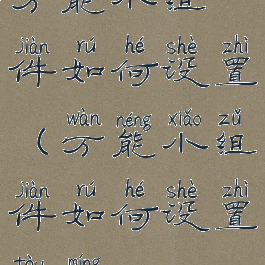 万能小组
jiàn rú hé shè zhì
件如何设置
wàn néng xiǎo zǔ
（万能小组
jiàn rú hé shè zhì
件如何设置
míng